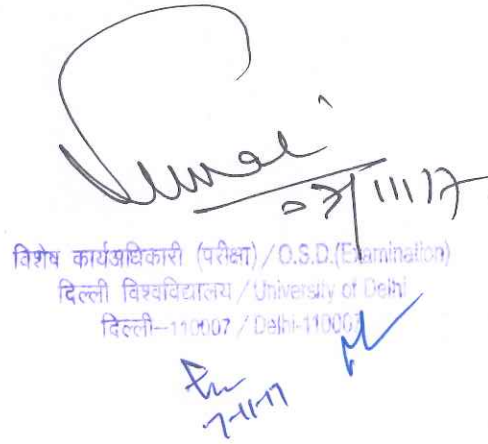 07/11/17
विशेष कार्यअधिकारी (परीक्षा) / O.S.D.(Examination)
दिल्ली विश्वविद्यालय / University of Delhi
दिल्ली-110007 / Delhi-110007
7-11-17